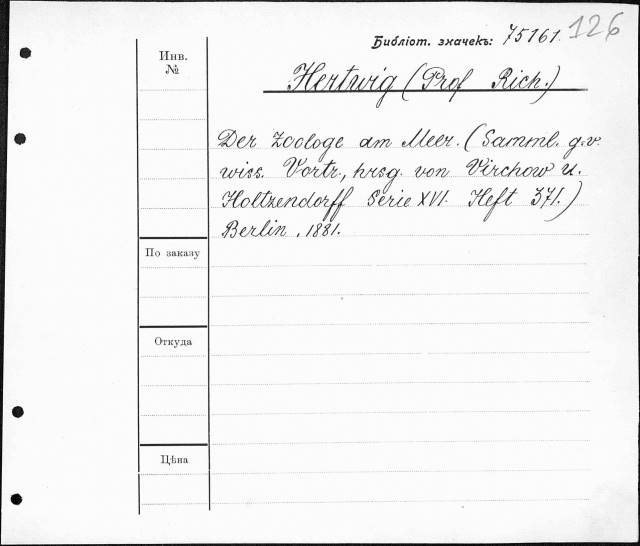 Библіот. значекъ: 75161. 126
Инв.
№
Hertwig (Prof Rich.)
Der Zoologe am Meer. (Samml. g. v.
wiss. Vortr., hrsg. von Virchow u.
Holtzendorff Serie XVI. Heft 371.)
Berlin, 1881.
По заказу
Откуда
Цѣна